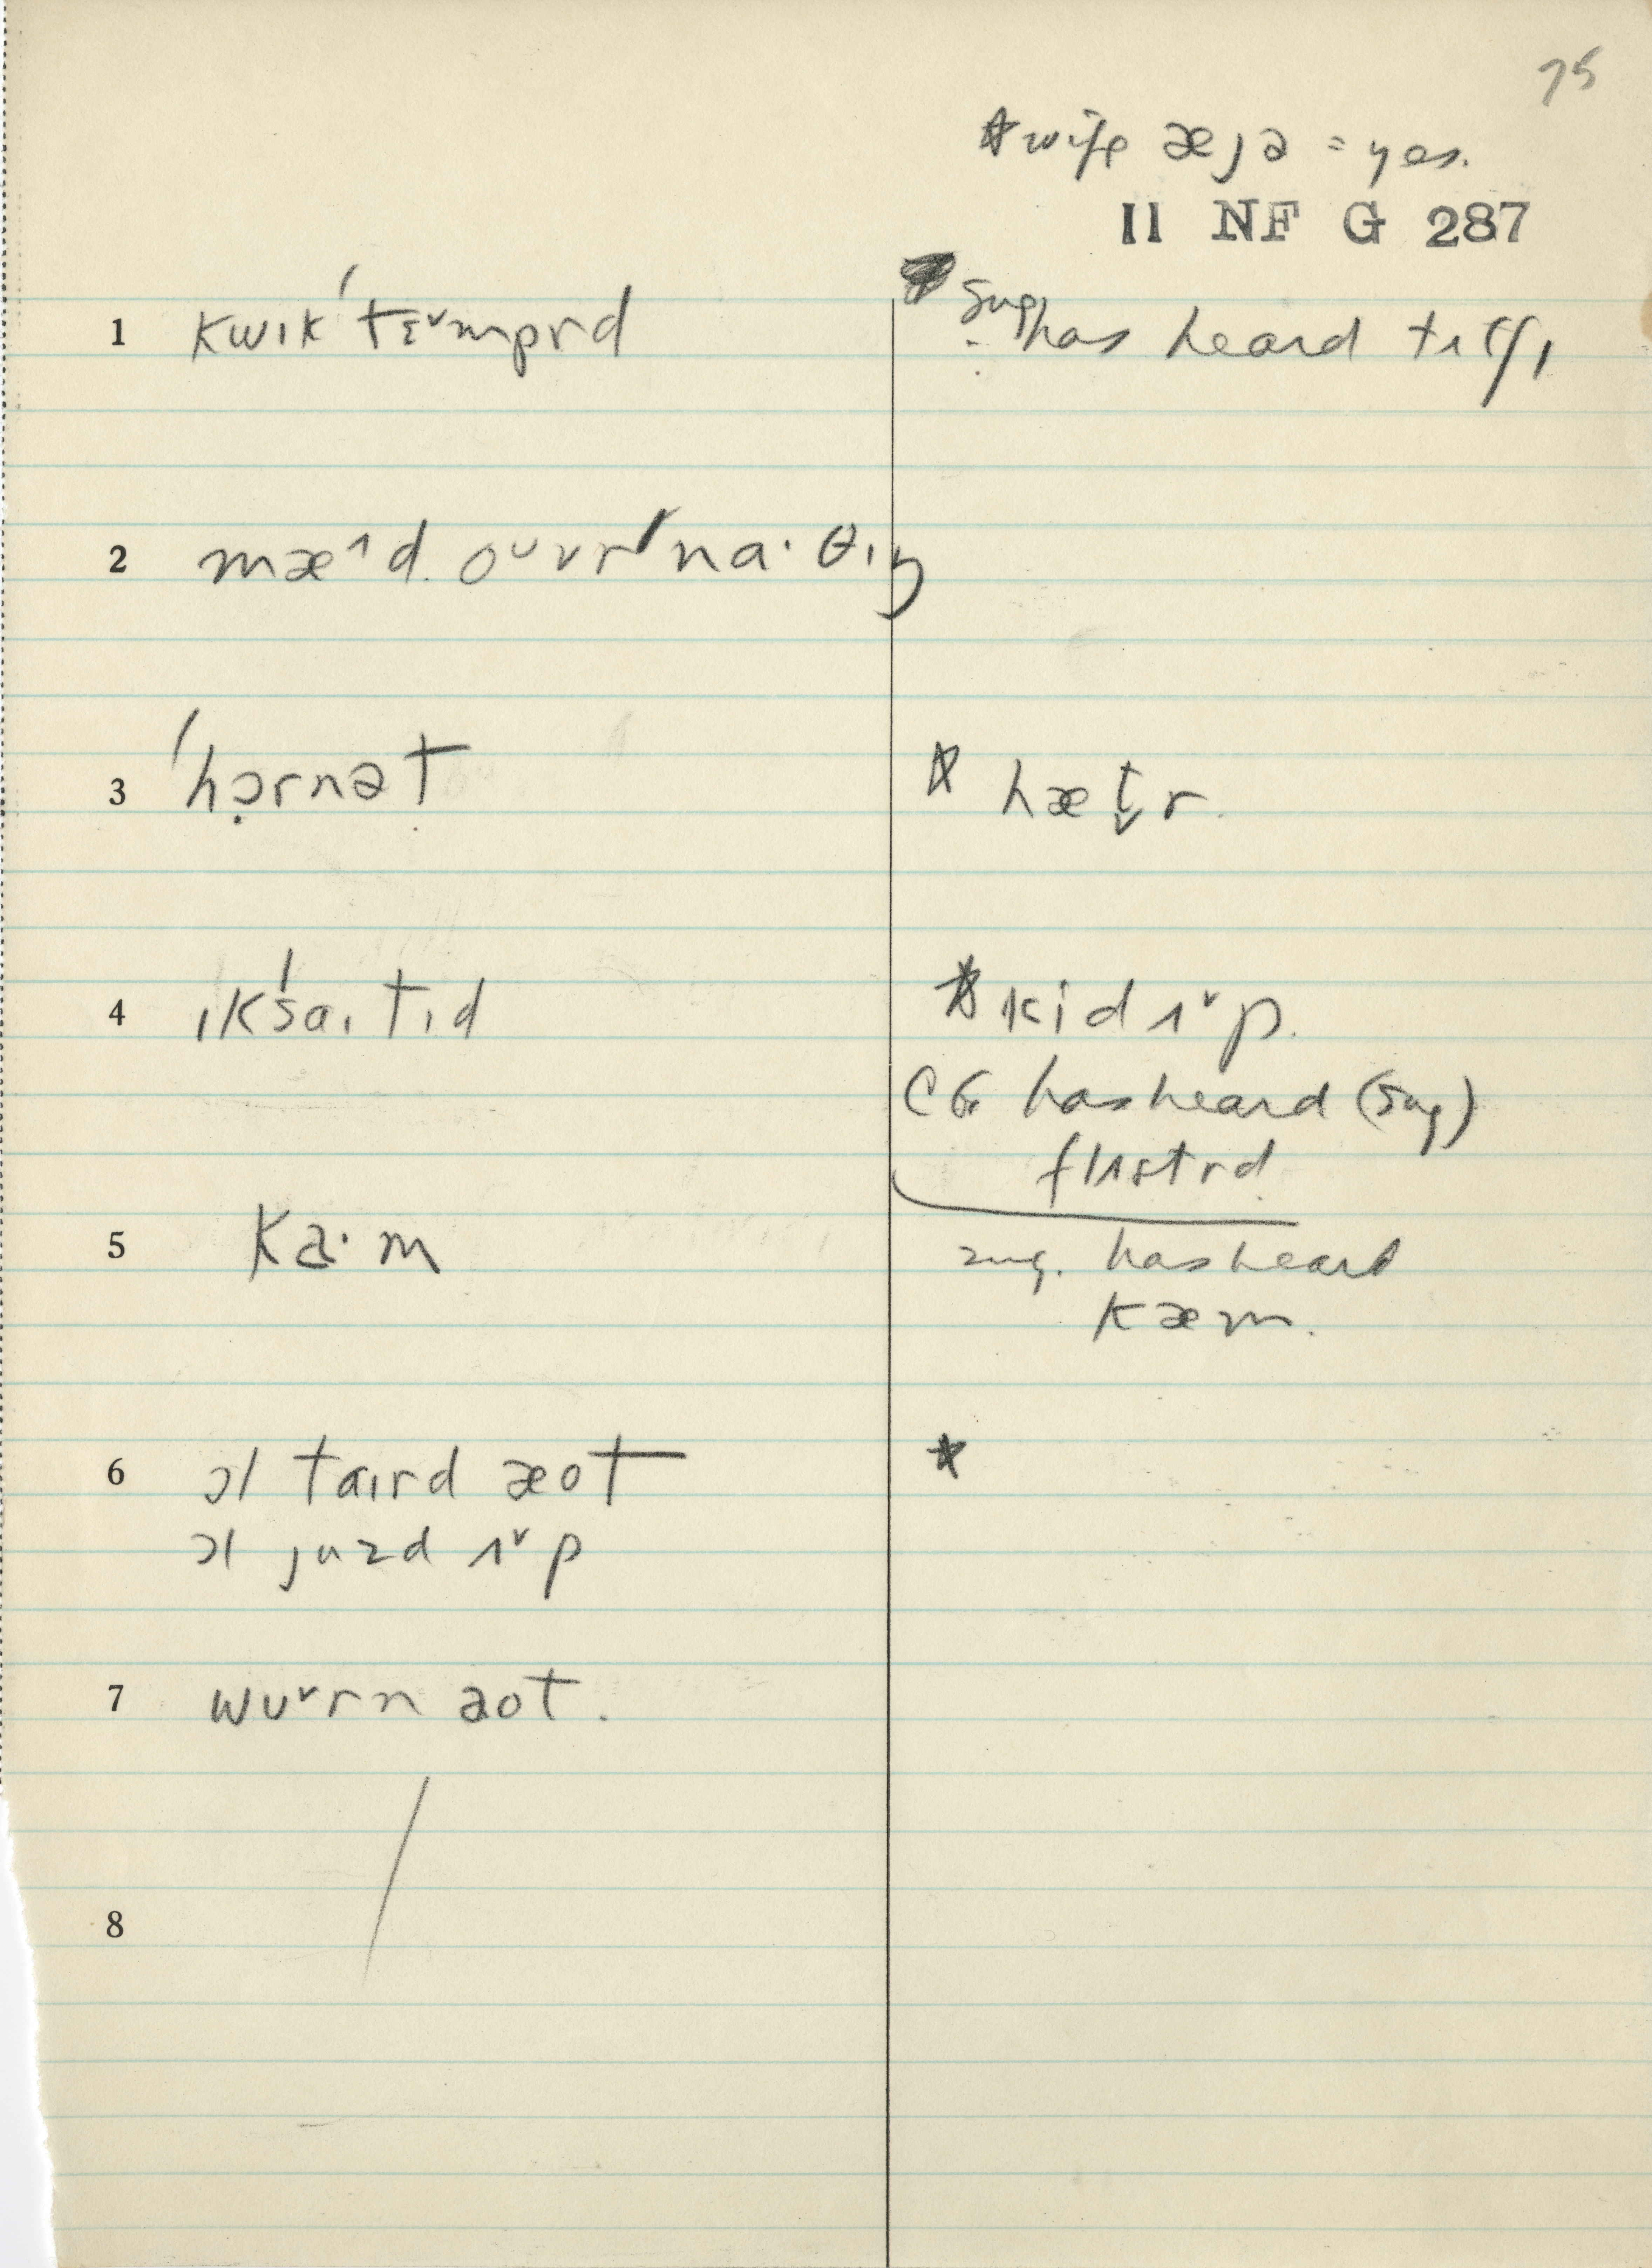 75
☆ wife æȷə = yes.
11 NF G 287
1 kwɪk ˈtɛ˅mprd
sug. has heard tɪtʃɪ
2 mæ˄d. oᴜvrˈnaˑθɪŋ
3 ˈhɔ̣rnət
☆ hæt̬r.
4 ɪkˈsaɪtɪd
☆ kid ʌ˅p.
CG has heard (sug)
flʌstrd
5 kaˑm
sug. has heard
kæm.
6 ɔl taɪrd æot
☆
ɔl juzd ʌ˅p
7 wᴜ˅rn aot.
8